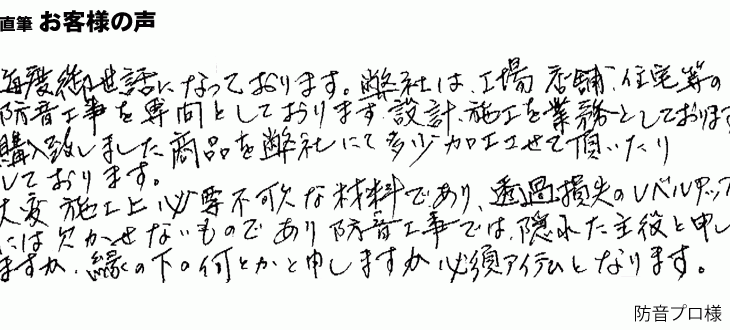 直筆 お客様の声
毎度御世話になっております。弊社は、工場、店舗、住宅等の
防音工事を専門としております。設計、施工を業務としております
購入致しました商品を弊社にて多少加工させて頂いたり
しております。
大変施工上必要不可欠な材料であり、透過損失のレベルアップ
には欠かせないものであり防音工事では、隠れた主役と申し
ますか、縁の下の何とかと申しますか必須アイテムとなります。
防音プロ様